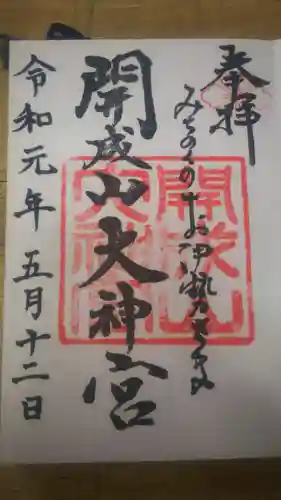 奉拝
みちのくのお伊勢さま
開成山大神宮
令和元年五月十二日